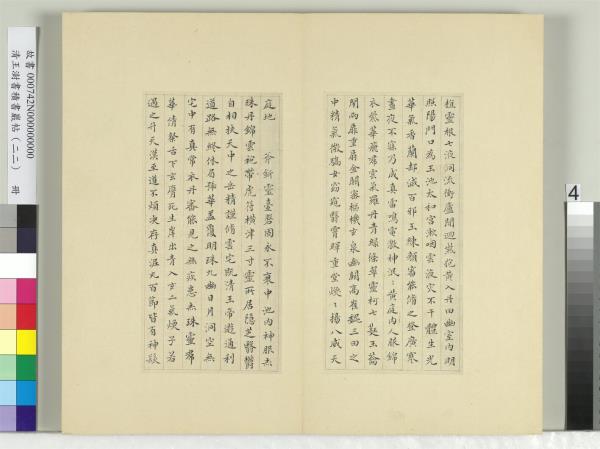 植靈根七液洞流衝廬間迴紫抱黃入丹田幽室內明
照陽門口為玉池太和宮漱咽靈液灾不干體生光
華氣香蘭却滅百邪玉鍊顏審能脩之登廣寒
晝夜不寐乃成真雷鳴電激神泯〻黃庭內人服錦
衣紫華飛裙雲氣羅丹青綠條翠靈柯七蕤玉籥
閉兩扉重扇金關密樞機玄泉幽闕高崔巍三田之
中精氣微嬌女窈窕翳霄暉重堂煥〻揚八威天
庭地斧斫靈臺盤固永不衰中池內神服赤
珠丹錦雲袍帶虎符橫津三寸靈所居隱芝翳鬱
自相扶天中之岳精謹脩雲宅既清玉帝遊通利
道路無終休眉號華蓋覆明珠九幽日月洞空無
宅中有真常衣丹審能見之無疾患赤珠靈裙
華倩粲舌下玄膺死生岸出青入玄二氣煥子若
遇之升天漢至道不煩決存真泥丸百節皆有神髮
故書 000742N000000000
清王澍書積書巖帖(二二) 冊
4